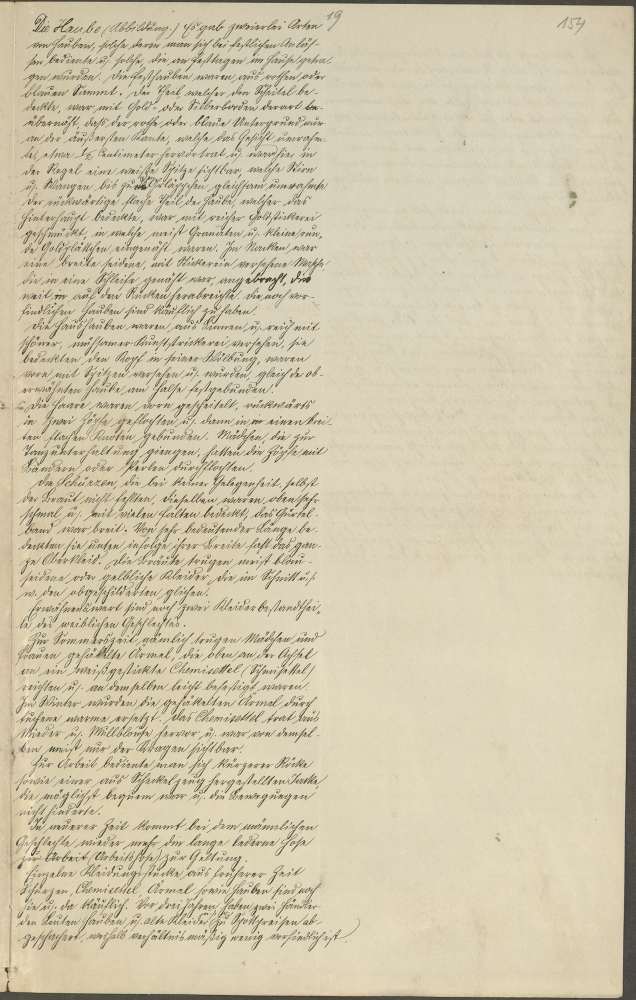 19
154
Die Haube (Abbildung.) Es gab zweierlei Arten
von Hauben, solche deren man sich bei festlichen Anläs-
sen bediente u. solche, die an Festtagen im Hause getra-
gen wurden. Die Festhauben waren aus rothem oder
blauem Sammt. Der Theil welcher den Scheitel be-
deckte, war mit Gold- oder Silberborden derart be-
übernäht, daß der rothe oder blaue Untergrund nur
an der äußersten Kante, welche das Gesicht umrahm-
te, etwa ½ Centimeter hervortrat u. war hie in
der Regel eine weiße Spitze sichtbar, welche Stirn
u. Wangen bis zu den Ohrläppchen gleichsam umrahmte
Der rückwärtige flache Theil der Haube, welcher das
Hinterhaupt bedeckte, war mit reicher Goldstickerei
geschmückt, in welche meist Granaten u. kleine run-
de Goldplättchen eingenäht waren. Im Nacken war
eine breite seidene, mit Stickerein versehene Masche
die in eine Schleife genäht war, angebracht, die
weit auf den Rücken herabreichte. Die noch vor-
findlichen Hauben sind käuflich zu haben.
Die Haushauben waren aus Linnen u. reich mit
schöner, mühsamer Kunststrickerei versehen, sie
bedeckten den Kopf in seiner Wölbung, waren
vorn mit Spitzen versehen u. wurden gleich der ob-
erwähnten Haube, am Halse festgebunden.
Die Haare waren vorn gescheitelt, rückwärts
in zwei Zöpfe geflochten u. dann in einen brei-
ten flachen Knoten gebunden. Mädchen, die zur
Tanzunterhaltung giengen, hatten die Zöpfe mit
Bändern oder Perlen durchflochten.
Die Schürzen, die bei keiner Gelegenheit, selbst
der Braut nicht fehlten, dieselben waren oben sehr
schmal u. mit vielen Falten bedeckt, das Gürtel-
band war breit. Von sehr bedeutender Länge be-
deckten sie unten infolge ihrer Breite fast das gan-
ze Oberkleid. Die Bräute trugen meist blau-
seidene oder gelbliche Kleider, die im Schnitt u. s.
w. den obgeschilderten glichen.
Erwähnenswert sind noch zwei Kleiderbestandthei-
le des weiblichen Geschlechtes.
Zur Sommerszeit nämlich trugen Mädchen und
Frauen gehäkelte Ärmel, die oben an der Achsel
an ein weißgesticktes Chemisettel
reichten u. an demselben leicht befestigt waren.
Im Winter wurden die gehäkelten Ärmel durch
tuchene warme ersetzt. Das Chemisettel trat aus
Mieder u. Wollblouse hervor u. war von demsel-
ben meist nur der Kragen sichtbar.
Zur Arbeit bediente man sich kürzerer Röcke
sowie einer aus hergestellten Jacke,
die möglichst bequem war u. die Bewegungen
nicht hinderte.
In neuerer Zeit kommt bei dem männlichen
Geschlechte wieder mehr die lange lederne Hose
zur Arbeit (Arbeitshose) zur Geltung.
Einzelne Kleidungsstücke aus früherer Zeit
Schürzen, Chemisettel, Ärmel sowie Hauben sind noch
hie u. da käuflich. Vor drei Jahren haben zwei Händler
den Leuten Hauben u. alte Kleider zu Spottpreisen ab-
geschachert, weshalb verhältnismäßig wenig vorfindlich ist.